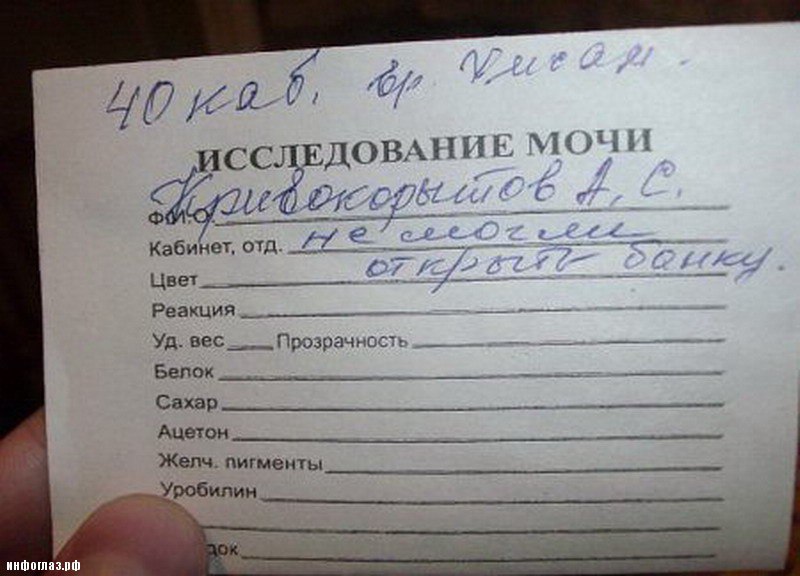 40 каб. вр.
ИССЛЕДОВАНИЕ МОЧИ
Ф.И.О. Кривокорытов А. С.
Кабинет, отд. не могли
Цвет открыть банку.
Реакция
Уд. вес Прозрачность
Белок
Сахар
Ацетон
Желч. пигменты
Уробилин
док
инфоглаз.рф